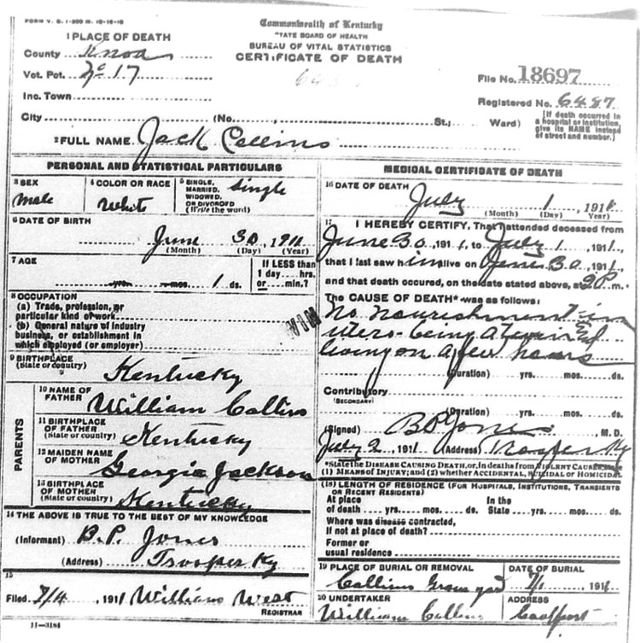 FORM V. S. 1-200 M. 10-16-10
Commonwealth of Kentucky
STATE BOARD OF HEALTH
BUREAU OF VITAL STATISTICS
CERTIFICATE OF DEATH
1 PLACE OF DEATH
County Knox
Vot. Pct. No 17
Inc. Town
File No. 18697
Registered No. 6487
City (No. St.; Ward)
[If death occurred in a hospital or institution, give its NAME instead of street and number.]
2 FULL NAME Jack Collins
PERSONAL AND STATISTICAL PARTICULARS
3 SEX
Male
4 COLOR OR RACE
White
5 SINGLE, MARRIED, WIDOWED, OR DIVORCED (Write the word)
Single
6 DATE OF BIRTH
June 30, 1911
(Month) (Day) (Year)
7 AGE
yrs. mos. 1 ds.
If LESS than 1 day....hrs. or....min.?
8 OCCUPATION
(a) Trade, profession, or particular kind of work
(b) General nature of industry business, or establishment in which employed (or employer)
9 BIRTHPLACE
(State or country)
Kentucky
PARENTS
10 NAME OF FATHER
William Collins
11 BIRTHPLACE OF FATHER
(State or country)
Kentucky
12 MAIDEN NAME OF MOTHER
Georgia Jackson
13 BIRTHPLACE OF MOTHER
(State or country)
Kentucky
14 THE ABOVE IS TRUE TO THE BEST OF MY KNOWLEDGE
(Informant) B.P. Jones
(Address) Trosper Ky
15
Filed 7/4, 1911 William West
REGISTRAR
11-3184
MEDICAL CERTIFICATE OF DEATH
16 DATE OF DEATH
July 1 1911
(Month) (Day) (Year)
17 I HEREBY CERTIFY, That I attended deceased from
June 30 1911, to July 1, 1911,
that I last saw him alive on June 30, 1911,
and that death occurred, on the date stated above, at 3 P. m.
The CAUSE OF DEATH* was as follows:
No nourishment in
utero- being a twin &
living on a few hours
(Duration) yrs. mos. ds.
Contributory
(SECONDARY)
(Duration) yrs. mos. ds.
(Signed) B P Jones, M. D.
July 2, 1911 (Address) Trosper Ky
*State the DISEASE CAUSING DEATH, or, in deaths from VIOLENT CAUSES, state (1) MEANS OF INJURY; and (2) whether ACCIDENTAL, SUICIDAL or HOMICIDAL.
(18) LENGTH OF RESIDENCE (FOR HOSPITALS, INSTITUTIONS, TRANSIENTS OR RECENT RESIDENTS)
At place of death yrs. mos. ds. In the State yrs. mos. ds.
Where was disease contracted, If not at place of death?
Former or usual residence
19 PLACE OF BURIAL OR REMOVAL
Collins Grave yard
DATE OF BURIAL
7/1 1911
20 UNDERTAKER
William Collins
ADDRESS